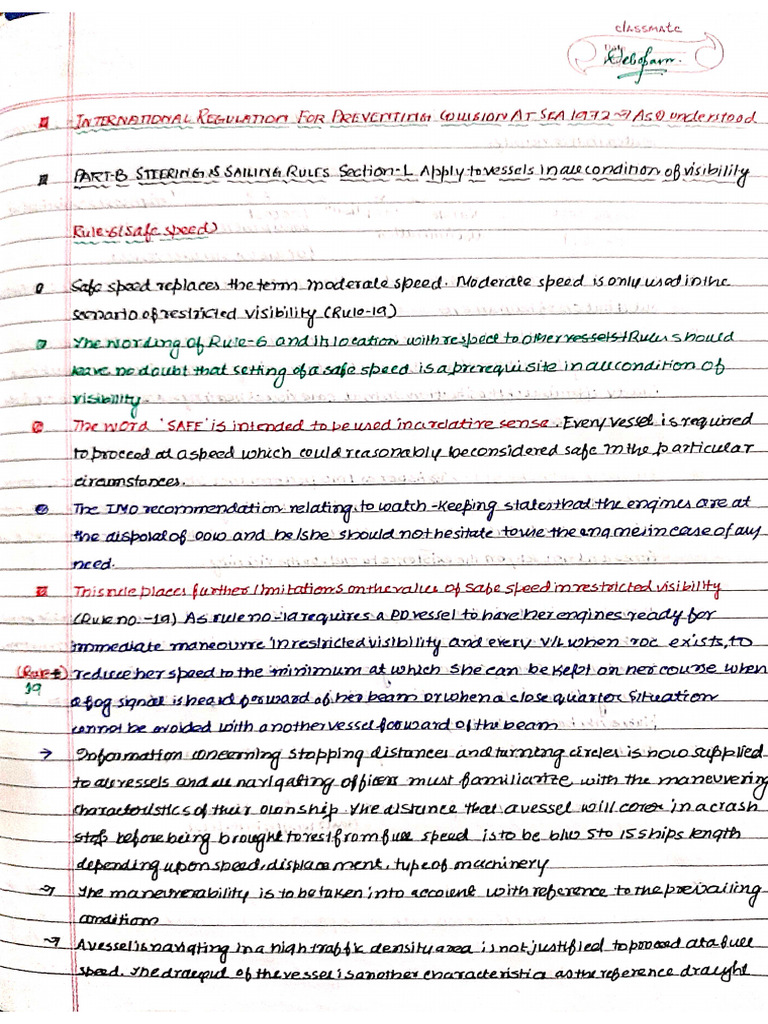 classmate
Debofarn.
INTERNATIONAL REGULATION FOR PREVENTING COLLISION AT SEA 1972 → AS O understood
PART-B STEERING & SAILING RULES Section-I. Apply to vessels in all condition of visibility
Rule-6 (safe speed)
Safe speed replaces the term moderate speed. Moderate speed is only used in the
scenario of restricted visibility (Rule-19)
The wording of Rule-6 and its location with respect to other vessels Rules should
leave no doubt that setting of a safe speed is a prerequisite in all condition of
visibility.
The word 'SAFE' is intended to be used in a relative sense. Every vessel is required
to proceed at a speed which could reasonably be considered safe in the particular
circumstances.
The IMO recommendation relating to watch-keeping states that the engines are at
the disposal of OOW and he/she should not hesitate to use the engines in case of any
need.
This rule places further limitations on the value of safe speed in restricted visibility
(Rule no -19) As rule no-19 requires a PD vessel to have her engines ready for
immediate maneouvre in restricted visibility and every v/l when roc exists, to
(Rule 19) reduce her speed to the minimum at which she can be kept on her course when
a fog signal is heard forward of her beam or when a close quarter situation
cannot be avoided with another vessel forward of the beam
→ Information concerning stopping distances and turning circles is now supplied
to all vessels and all navigating officers must familiarize with the maneuvering
characteristics of their own ship. The distance that a vessel will cover in a crash
stop before being brought to rest from full speed is to be b/w 5 to 15 ships length
depending upon speed, displacement, type of machinery
→ The maneuverability is to be taken into account with reference to the prevailing
condition
→ A vessel is navigating in a high traffic density area is not justified to proceed at a full
speed. The draught of the vessel is another characteristic as the reference draught